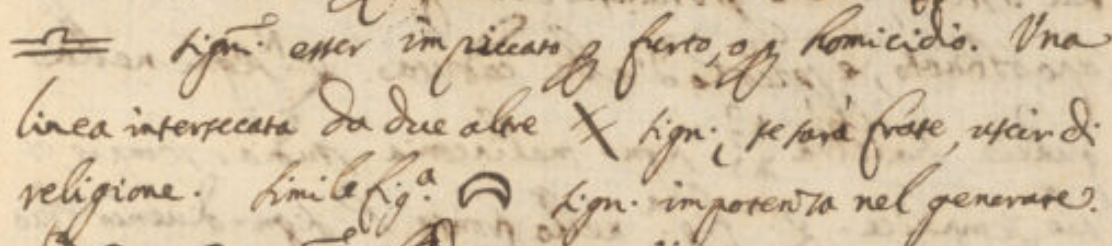 ♎ signi. esser impiccato p furto, o p homicidio. Una
linea intersecata da due altre sign: se sarà frate, uscir di
religione. Simile fig.ª sign. impotenza nel generare.